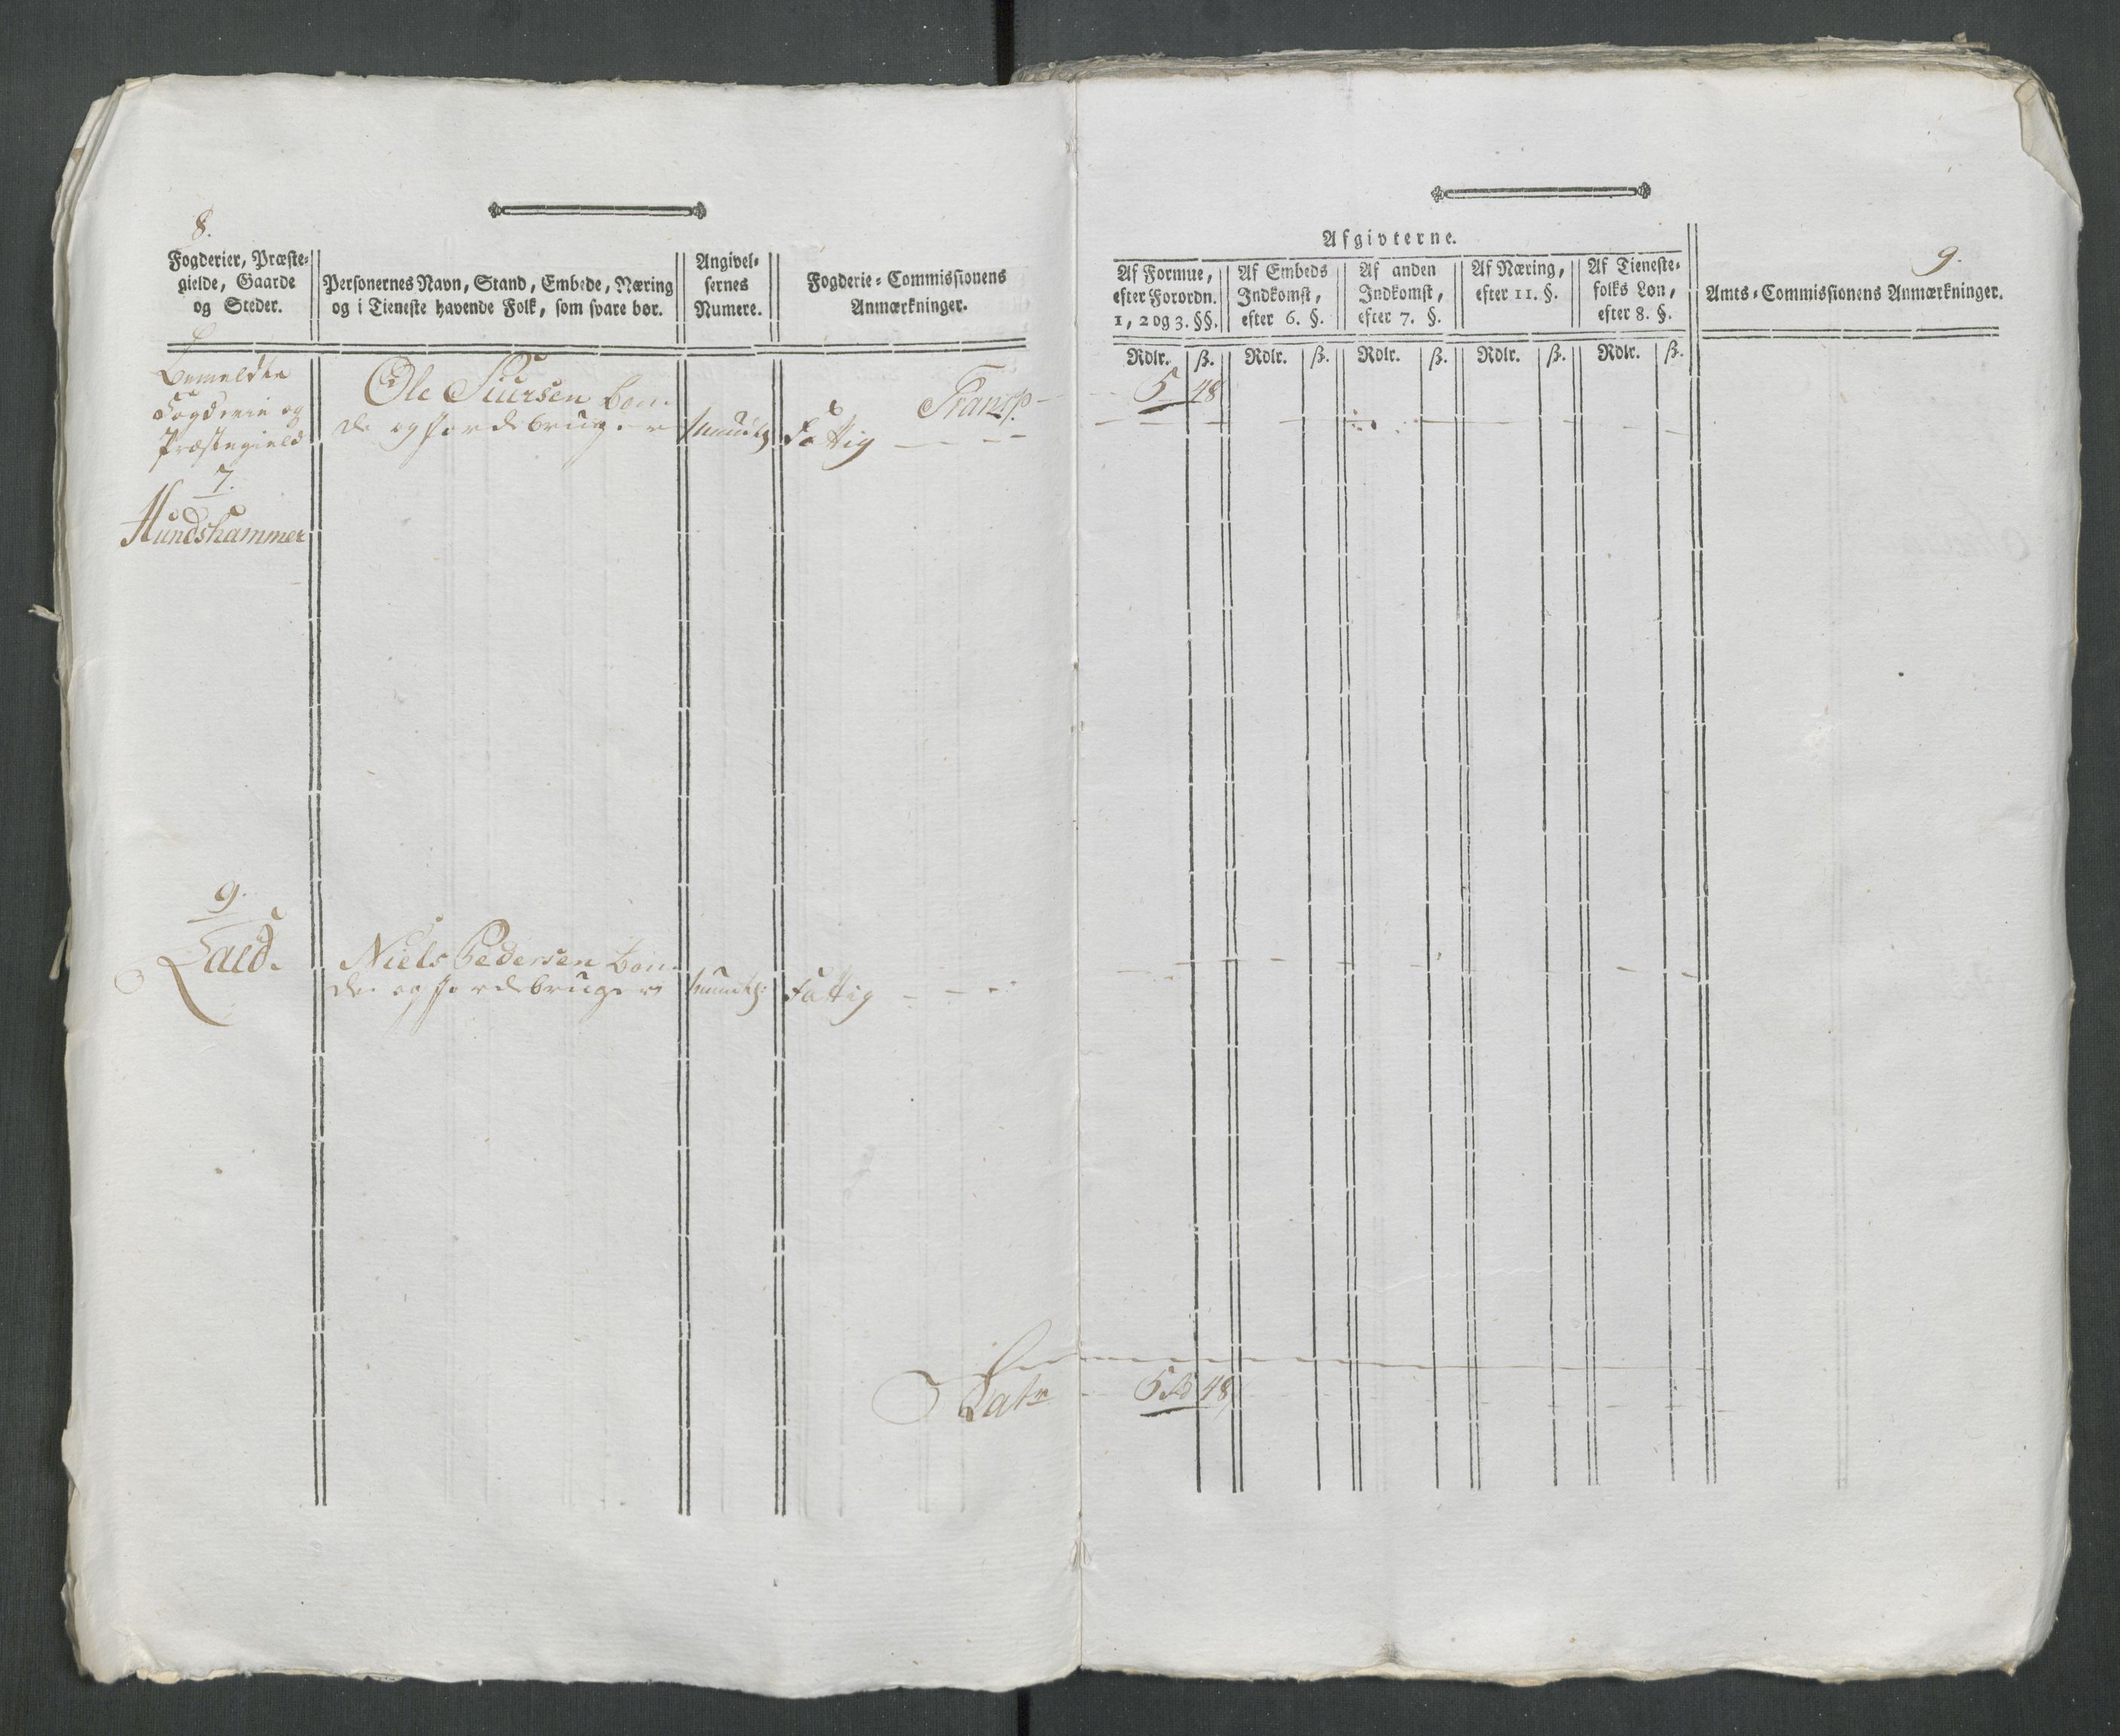 8.
Fogderier, Præste-
gielde, Gaarde
og Steder.
Personernes Navn, Stand, Embede, Næring
og i Tieneste havende Folk, som svare bør.
Angivel-
sernes
Numere.
Fogderie-Commissionens
Anmærkninger.
Bemeldte
Fogderie og
Præstegield
7.
Hundshammer
Ole Siursen bon-
de og Jordebruger
mundtl:
Transp
Fattig
9.
Niels Pedersen bon-
de og Jordebruger
mundtl:
Fattig
Latr
9.
Afgivterne.
Af Formue,
efter Forordn.
1, 2 og 3. §§.
Af Embeds
Indkomst,
efter 6. §.
Af anden
Indkomst,
efter 7. §.
Af Næring,
efter 11. §.
Af Tieneste-
folks Løn,
efter 8. §.
Amts-Commissionens Anmærkninger.
Rdlr. ß. Rdlr. ß. Rdlr. ß. Rdlr. ß. Rdlr. ß.
5 48
5 48